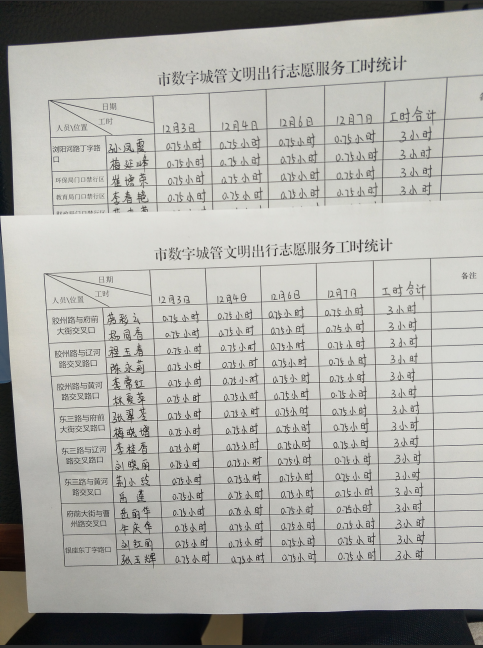 市数字城管文明出行志愿服务工时统计
日期
工时
人员\位置
12月3日 12月4日 12月6日 12月7日 工时合计
浏阳河路丁字路口
孙凤霞 0.75小时 0.75小时 0.75小时 0.75小时 3小时
梅延峰 0.75小时 0.75小时 0.75小时 0.75小时 3小时
环保局门口禁行区 崔增荣 0.75小时 0.75小时 0.75小时 0.75小时 3小时
教育局门口禁行区 李春艳 0.75小时 0.75小时 0.75小时 0.75小时 3小时
市数字城管文明出行志愿服务工时统计
日期
工时
人员\位置
12月3日 12月4日 12月6日 12月7日 工时合计 备注
胶州路与府前大街交叉口
0.75小时 0.75小时 0.75小时 0.75小时 3小时
杨同香 0.75小时 0.75小时 0.75小时 0.75小时 3小时
胶州路与辽河路交叉路口
程玉春 0.75小时 0.75小时 0.75小时 0.75小时 3小时
陈永莉 0.75小时 0.75小时 0.75小时 0.75小时 3小时
胶州路与黄河路交叉路口
李常红 0.75小时 0.75小时 0.75小时 0.75小时 3小时
林爱萍 0.75小时 0.75小时 0.75小时 0.75小时 3小时
东三路与府前大街交叉口
张翠芬 0.75小时 0.75小时 0.75小时 0.75小时 3小时
梅晓增 0.75小时 0.75小时 0.75小时 0.75小时 3小时
东三路与辽河路交叉路口
李桂香 0.75小时 0.75小时 0.75小时 0.75小时 3小时
刘晓丽 0.75小时 0.75小时 0.75小时 0.75小时 3小时
东三路与黄河路交叉口
荆小玲 0.75小时 0.75小时 0.75小时 0.75小时 3小时
岳莲 0.75小时 0.75小时 0.75小时 0.75小时 3小时
府前大街与曹州路交叉口
岳丽华 0.75小时 0.75小时 0.75小时 0.75小时 3小时
牛庆华 0.75小时 0.75小时 0.75小时 0.75小时 3小时
银座东丁字路口
刘红丽 0.75小时 0.75小时 0.75小时 0.75小时 3小时
张玉辉 0.75小时 0.75小时 0.75小时 0.75小时 3小时